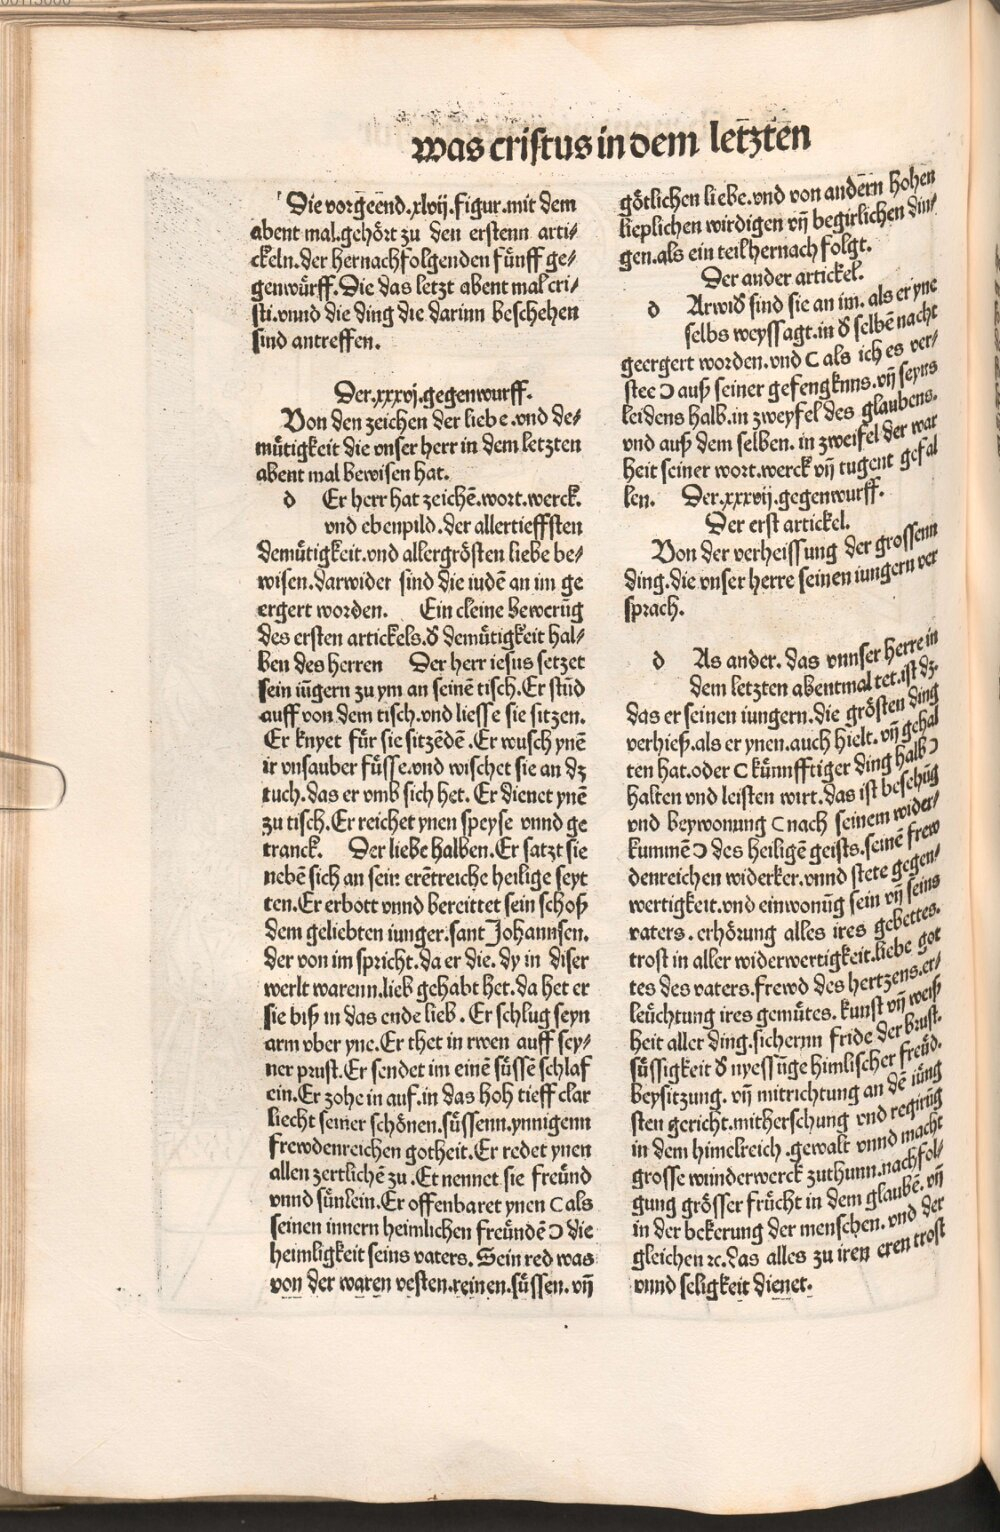 was cristus in dem letzten
Die vorgeend.xlvij.figur.mit dem
abent mal.gehört zu den erstenn arti⸗
ckeln.der hernachfolgenden fünff ge⸗
genwürff.Die das letzt abent mal cri⸗
sti.vnnd die ding die darinn beschehen
sind antreffen.
Der.xxxvj.gegenwurff.
Von den zeichen der liebe.vnd de⸗
mütigkeit die vnser herr in dem letzten
abent mal bewisen hat.
d Er herr hat zeichē.wort.werck.
vnd ebenpild.der allertieffsten
demütigkeit.vnd allergrösten liebe be⸗
wisen.darwider sind die iudē an im ge
ergert worden. Ein cleine bewerūg
des ersten artickels.d̕ demütigkeit hal⸗
ben des herren Der herr iesus setzet
sein iūgern zu ym an seinē tisch.Er stūd
auff von dem tisch.vnd liesse sie sitzen.
Er knyet für sie sitzēdē.Er wusch ynē
ir vnsauber füsse.vnd wischet sie an dz
tuch.das er vmb sich het. Er dienet ynē
zu tisch.Er reichet ynen speyse vnnd ge
tranck. Der liebe halben.Er satzt sie
nebē sich an sein erētreiche heilige seyt
ten.Er erbott vnnd bereittet sein schoß
dem geliebten iunger.sant Johannsen.
der von im spricht.da er die.dy in diser
werlt warenn.lieb gehabt het.da het er
sie biß in das ende lieb. Er schlug seyn
arm vber yne.Er thet in rwen auff sey⸗
ner prust.Er sendet im einē süssē schlaf
ein.Er zohe in auf.in das hoh tieff clar
liecht seiner schönen.süssenn.ynnigenn
frewdenreichen gotheit.Er redet ynen
allen zertlichē zu.Et nennet sie freünd
vnnd sünlein.Er offenbaret ynen (als
seinen innern heimlichen freündē) die
heimligkeit seins vaters. Sein red was
von der waren vesten.reinen.süssen.vn̄
götlichen liebe.vnd von andern hohen
lieplichen wirdigen vn̄ begirlichen din⸗
gen.als ein teil hernach folgt.
Der ander artickel.
d Arwid̕ sind sie an im. als er yne
selbs weyssagt.in d̕ selbē nacht
geergert worden.vnd (als ich es ver⸗
stee) auß seiner gefengknns.vn̄ seyns
leidens halb.in zweyfel des glaubens.
vnd auß dem selben. in zweifel der war
heit seiner wort.werck vn̄ tugent gefal
len. Der.xxxvij.gegenwurff.
Der erst artickel.
Von der verheissung der grossenn
ding.die vnser herre seinen iungern ver
sprach.
d As ander. das vnnser herre in
dem letzten abentmal tet.ist dz
das er seinen iungern.die grösten ding
verhieß.als er ynen.auch hielt. vn̄ gehal
ten hat.oder (künnfftiger ding halb)
halten vnd leisten wirt.das ist beschūg
vnd beywonung (nach seinem wider⸗
kummē) des heiligē geists.seinē frew
denreichen widerker.vnnd stete gegen⸗
wertigkeit.vnd einwonūg sein vn̄ seins
vaters. erhörung alles ires gebettes.
trost in aller widerwertigkeit.liebe got
tes des vaters.frewd des hertzens.er⸗
leüchtung ires gemütes. kunst vn̄ weiß
heit aller ding.sichernn fride der brust.
süssigkeit d̕ nyessūge himlischer freüd.
beysitzung. vn̄ mitrichtung an dē iüng
sten gericht.mitherschung vnd regirūg
in dem himelreich.gewalt vnnd macht
grosse wunderwerck zuthunn.nachfol⸗
gung grösser frücht in dem glaubē. vn̄
in der bekerung der menschen. vnd der
gleichen ꝛc.das alles zu iren eren trost
vnnd seligkeit dienet.